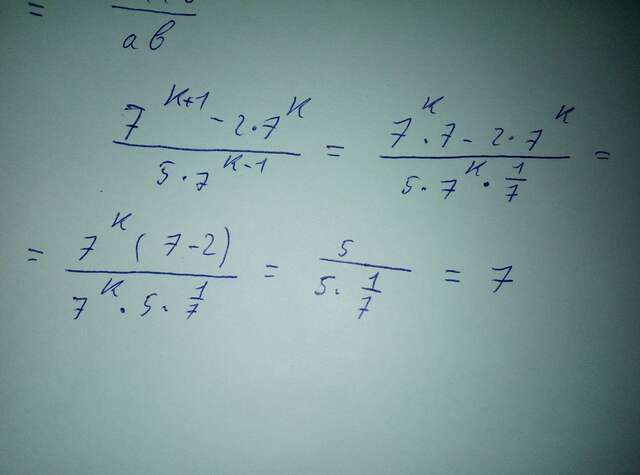 =
ab
7^{k+1} - 2·7^k / 5·7^{k-1} = 7^k·7 - 2·7^k / 5·7^k·1/7 =
= 7^k(7-2) / 7^k·5·1/7 = 5 / 5·1/7 = 7